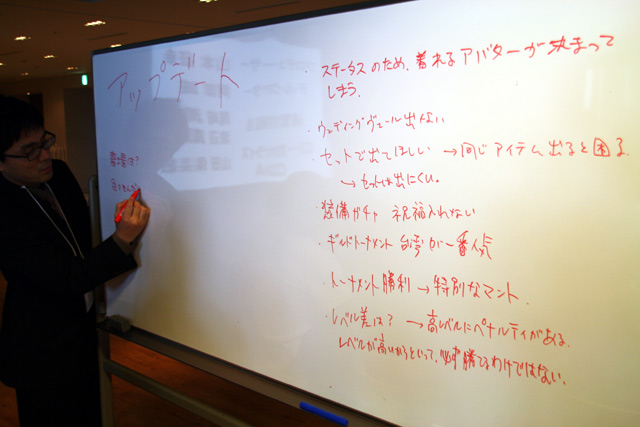 アップデート
需要は?
ステータスのため、着れるアバターが決まって
しまう。
・ウェディングヴェール出ない
・セットで出てほしい → 同じアイテム出ると困る
→ セットは出にくい。
・装備ガチャ 祝福入れない
・ギルドトーナメント 台湾が一番人気
・トーナメント勝利 → 特別なマント
・レベル差は? → 高レベルにペナルティがある.
レベルが高いからといって、必ず勝てるわけではない.